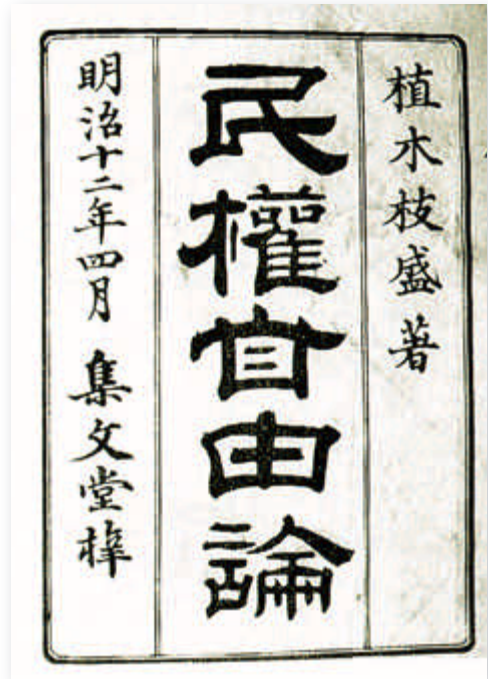 植木枝盛著
民權自由論
明治十二年四月 集文堂梓